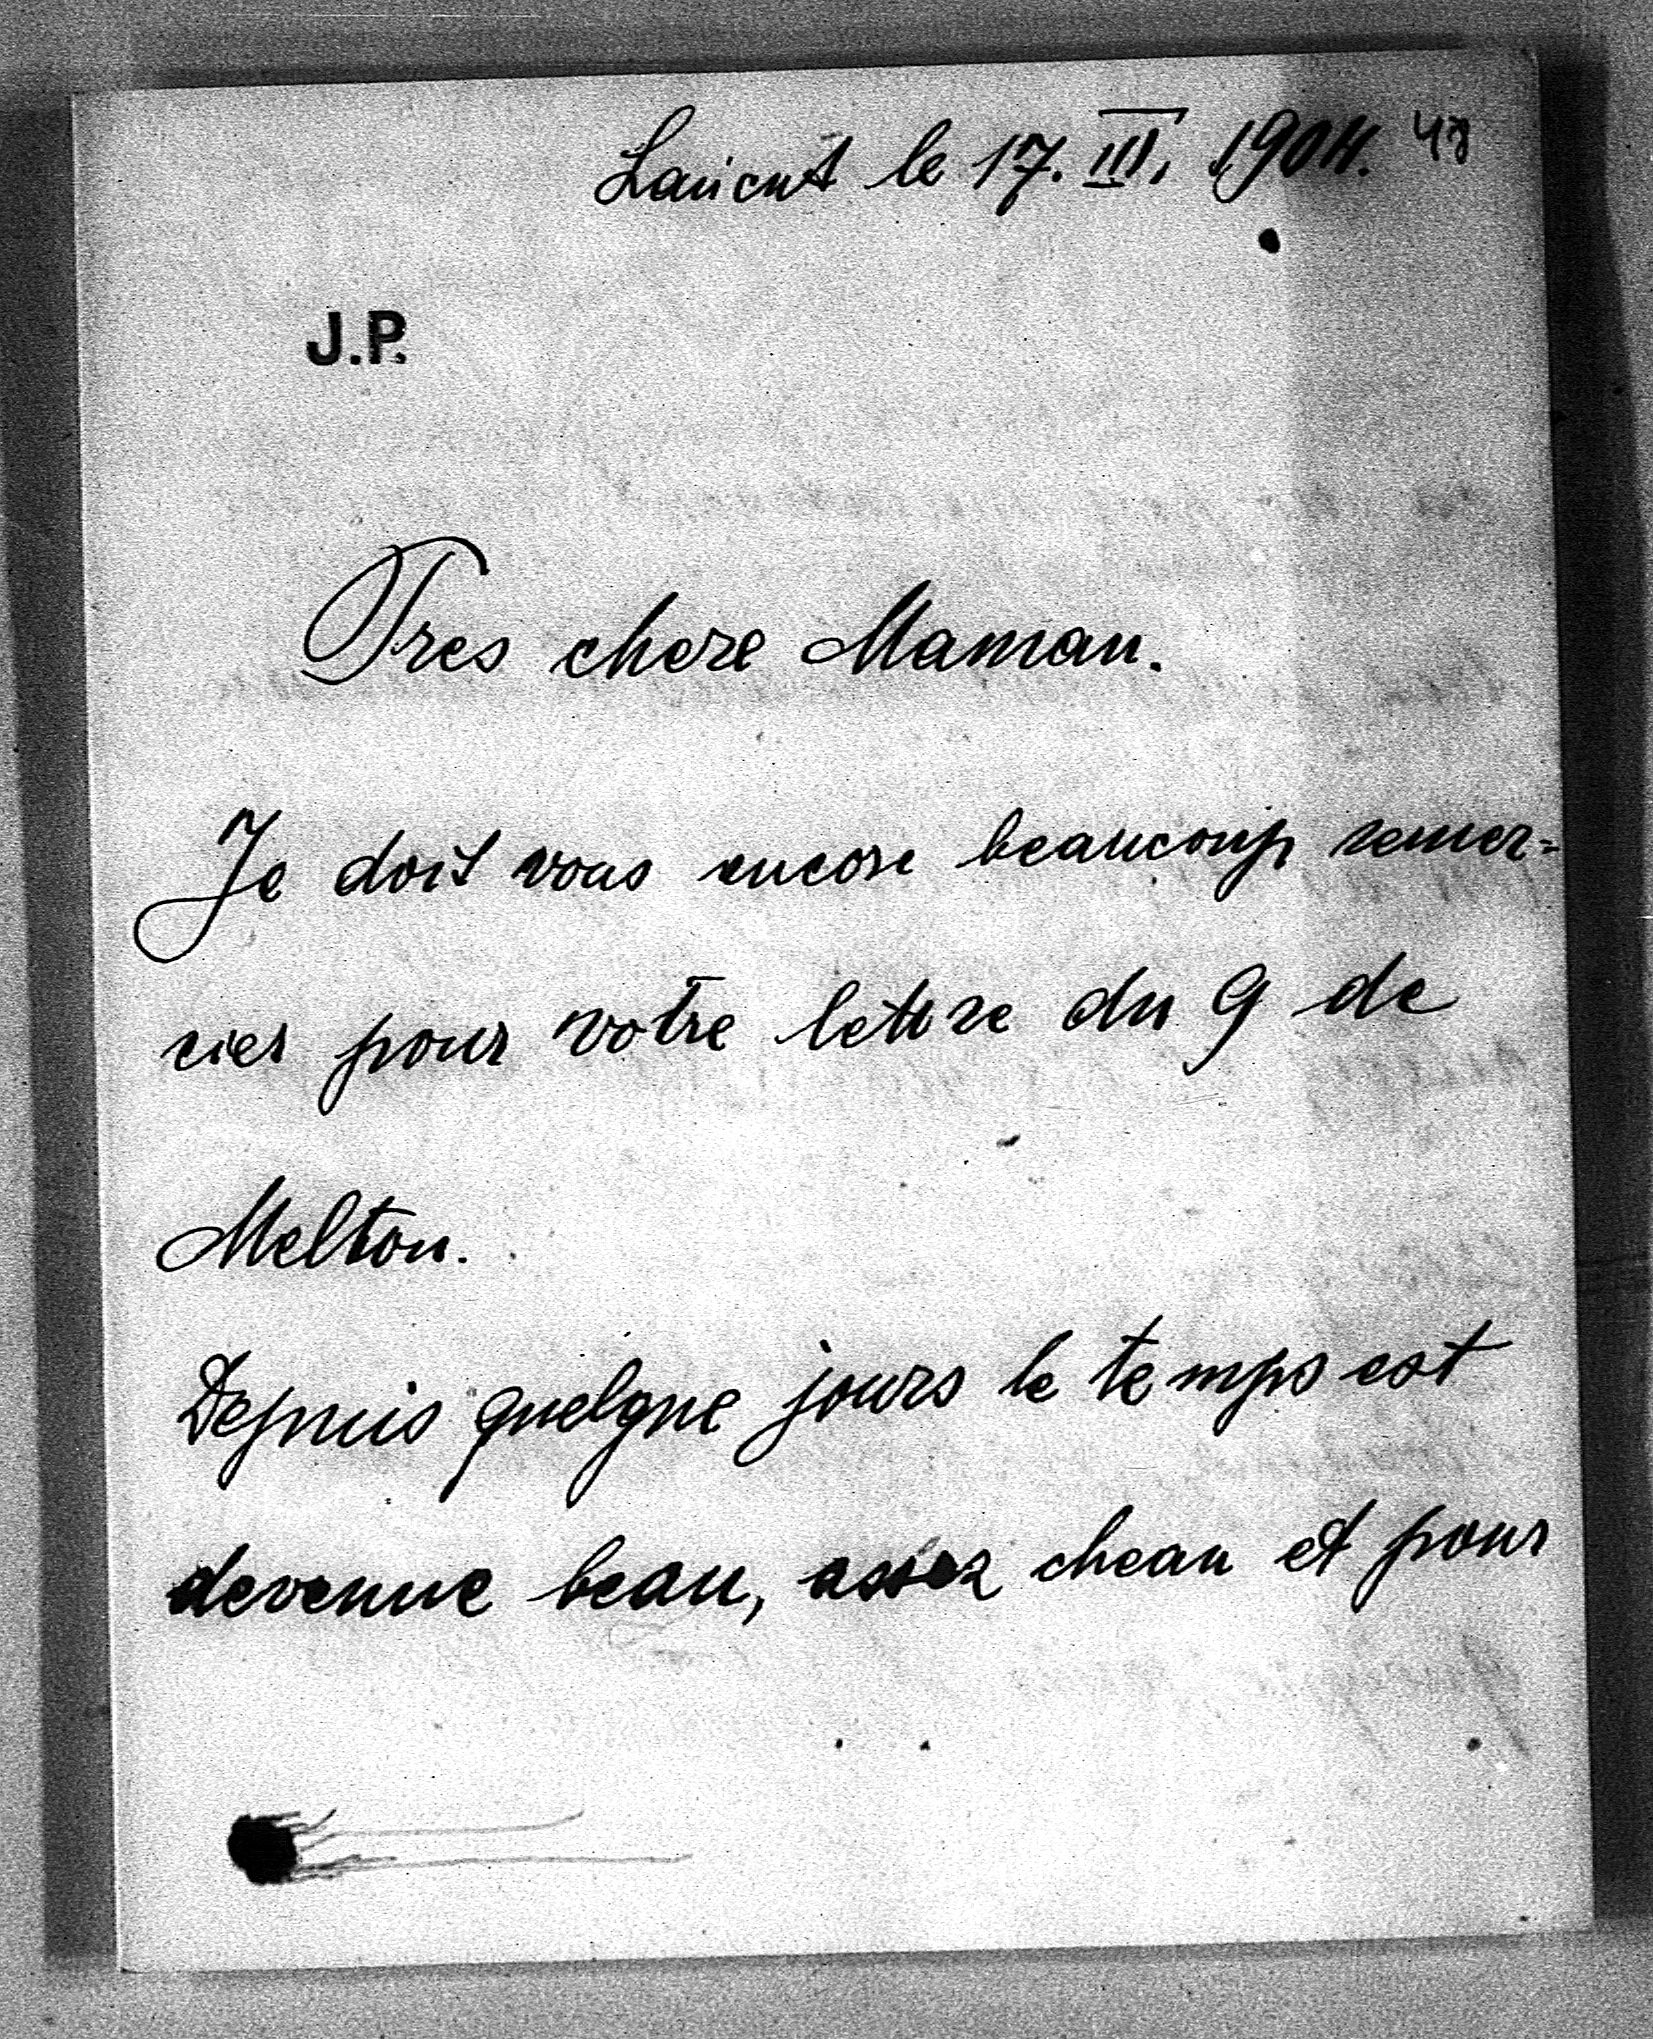 Lancut le 17. III. 1904. 48
J.P.
Tres chere Maman.
Je doit vous encore beaucoup remer=
cier pour votre lettre du 9 de
Melton.
Depuis quelque jours le temps est
devenue beau, assez cheau et pour